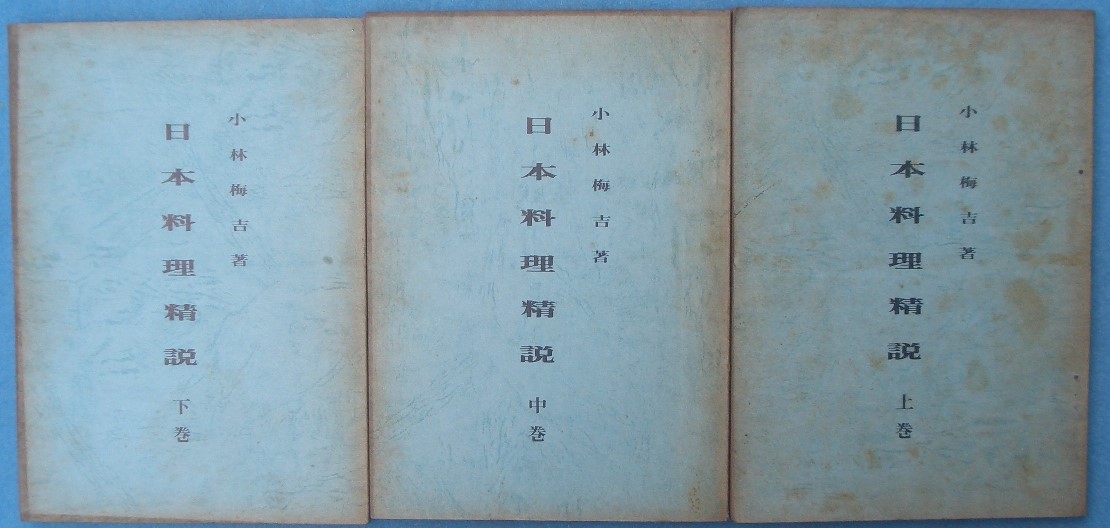 小林梅吉著
日本料理精説 上巻
小林梅吉著
日本料理精説 中巻
小林梅吉著
日本料理精説 下巻